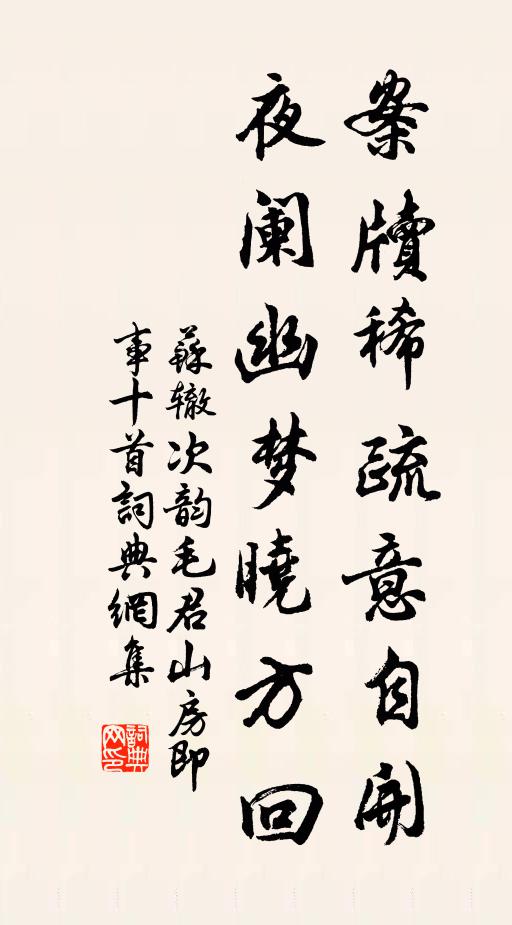 案牍稀疏意自開
夜阑幽梦曉方回
蘇辙次韵毛君山房即
事十首詞典網集
詞典
网印